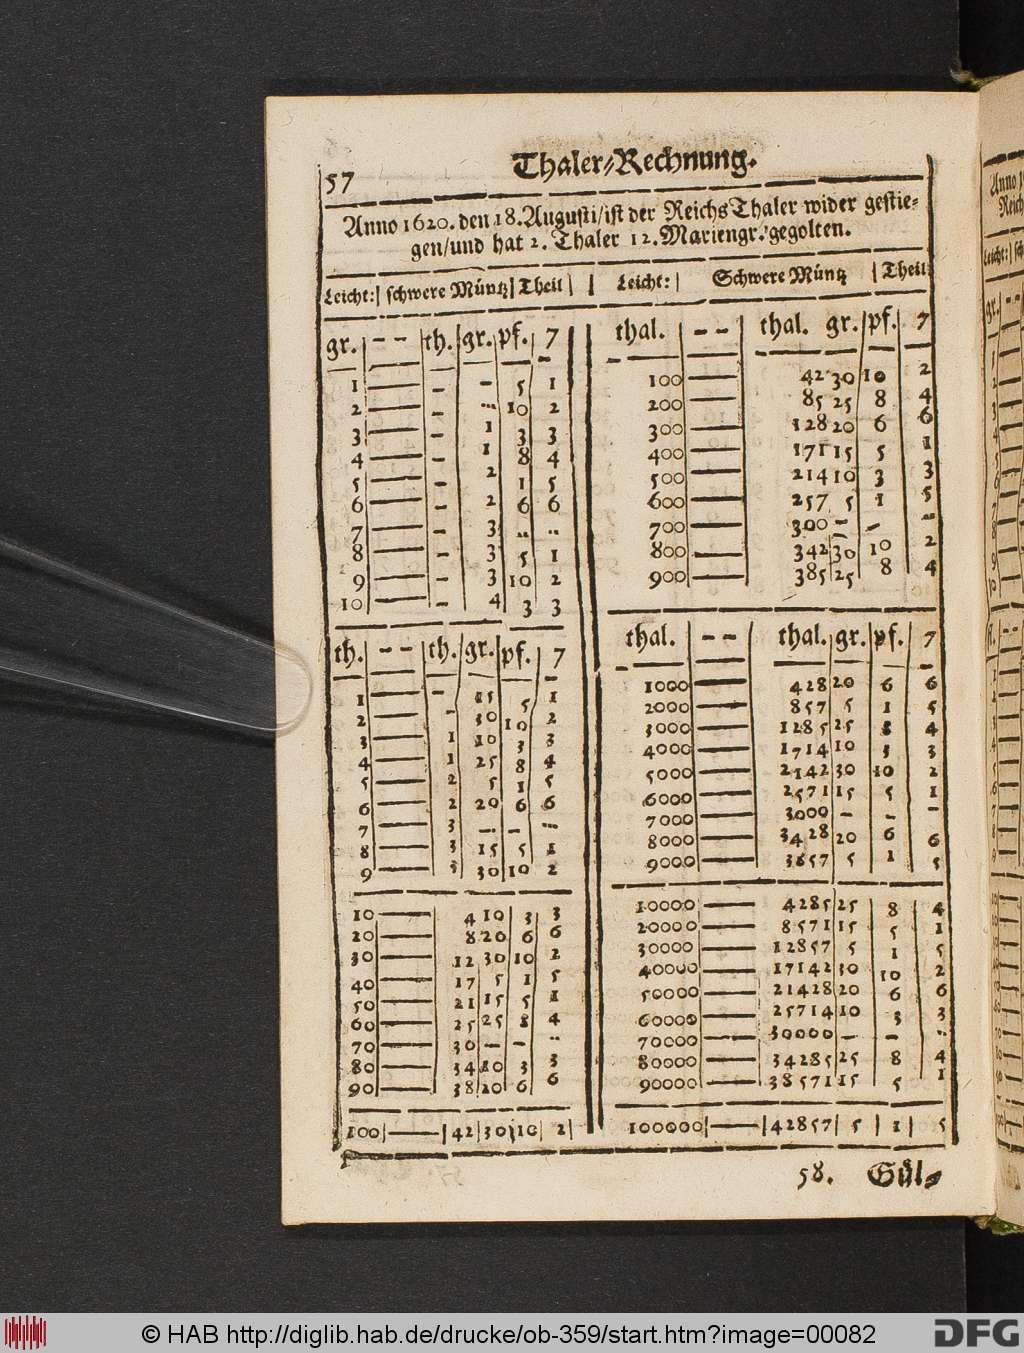 57 Thaler-Rechnung.
Anno 1620. den 18. Augusti/ist der ReichsThaler wider gestie-
gen/und hat 2. Thaler 12. Mariengr. gegolten.
Leicht: schwere Müntz Theil
gr. -- th. gr. pf. 7
1 — - - 5 1
2 — - ... 10 2
3 — - 1 3 3
4 — - 1 8 4
5 — - 2 1 5
6 — - 2 6 6
7 — - 3 .. ..
8 — - 3 5 1
9 — - 3 10 2
10 — - 4 3 3
th. -- th. gr. pf. 7
1 — - 15 5 1
2 — - 30 10 2
3 — 1 10 3 3
4 — 1 25 8 4
5 — 2 5 1 5
6 — 2 20 6 6
7 — 3 ... - ...
8 — 3 15 5 1
9 — 3 30 10 2
10 — 4 10 3 3
20 — 8 20 6 6
30 — 12 30 10 2
40 — 17 5 1 5
50 — 21 15 5 1
60 — 25 25 8 4
70 — 30 - - ..
80 — 34 10 3 3
90 — 38 20 6 6
100 — 42 30 10 2
Leicht: Schwere Müntz Theil
thal. -- thal. gr. pf. 7
100 — 42 30 10 2
200 — 85 25 8 4
300 — 128 20 6 6
400 — 171 15 5 1
500 — 214 10 3 3
600 — 257 5 1 5
700 — 300 - - -
800 — 342 30 10 2
900 — 385 25 8 4
thal. -- thal. gr. pf. 7
1000 — 428 20 6 6
2000 — 857 5 1 5
3000 — 1285 25 8 4
4000 — 1714 10 3 3
5000 — 2142 30 10 2
6000 — 2571 15 5 1
7000 — 3000 - - -
8000 — 3428 20 6 6
9000 — 3857 5 1 5
10000 — 4285 25 8 4
20000 — 8571 15 5 1
30000 — 12857 5 1 5
40000 — 17142 30 10 2
50000 — 21428 20 6 6
60000 — 25714 10 3 3
70000 — 30000 - - ..
80000 — 34285 25 8 4
90000 — 38571 15 5 1
100000 — 42857 5 1 5
58. Gül-
Anno
Reich
Leicht:
gr.
© HAB http://diglib.hab.de/drucke/ob-359/start.htm?image=00082
DFG